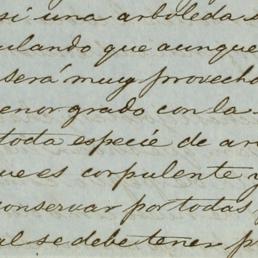 si una arboleda
ulando que aunque
será muy provecho
enor grado con la
toda especie de ar
ue es corpulente y
conservar por todas
al se debe tener p